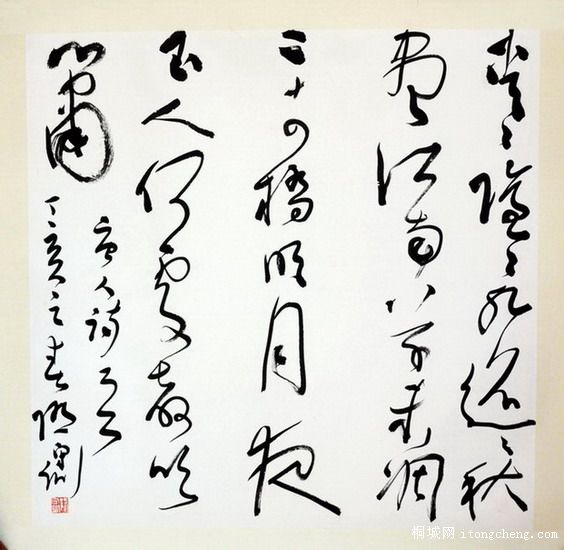 青山隱隱水迢迢秋
盡江南草未凋
二十四橋明月夜
玉人何處教吹
簫
唐人詩一首
丁亥之春
桐城网 itongcheng.com